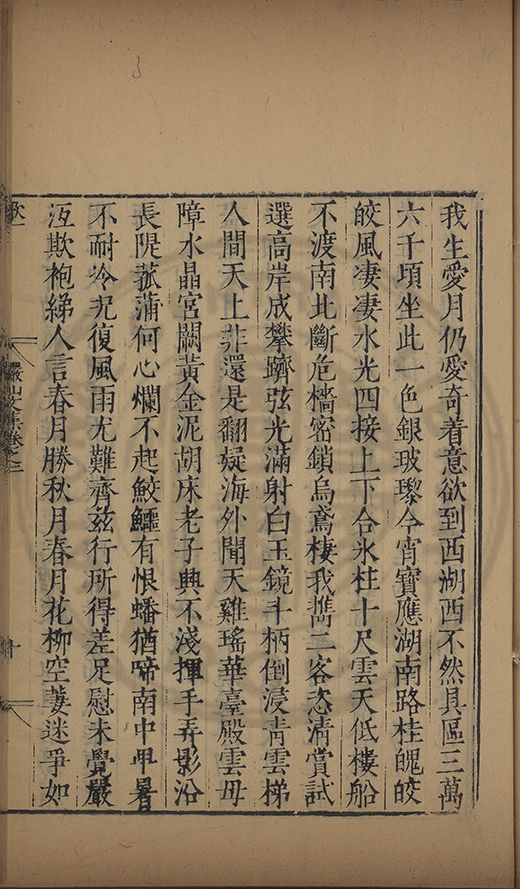 我生愛月仍愛奇着意欲到西湖西不然具區三萬
六千頃坐此一色銀玻瓈今宵寶應湖南路桂魄皎
皎風凄凄水光四接上下合氷柱十尺雲天低樓船
不渡南北斷危檣密鎖烏鳶棲我擕二客恣清賞試
選高岸成攀躋弦光滿射白玉鏡斗柄倒浸青雲梯
人間天上非還是翻疑海外聞天雞瑤華臺殿雲母
障水晶宮闕黃金泥胡床老子興不淺揮手弄影沿
長隄菰蒲何心爛不起鮫鱷有恨蟠猶啼南中甲暑
不耐冷况復風雨尤難齊兹行所得差足慰未覺嚴
沍欺袍綈人言春月勝秋月春月花柳空萋迷爭如